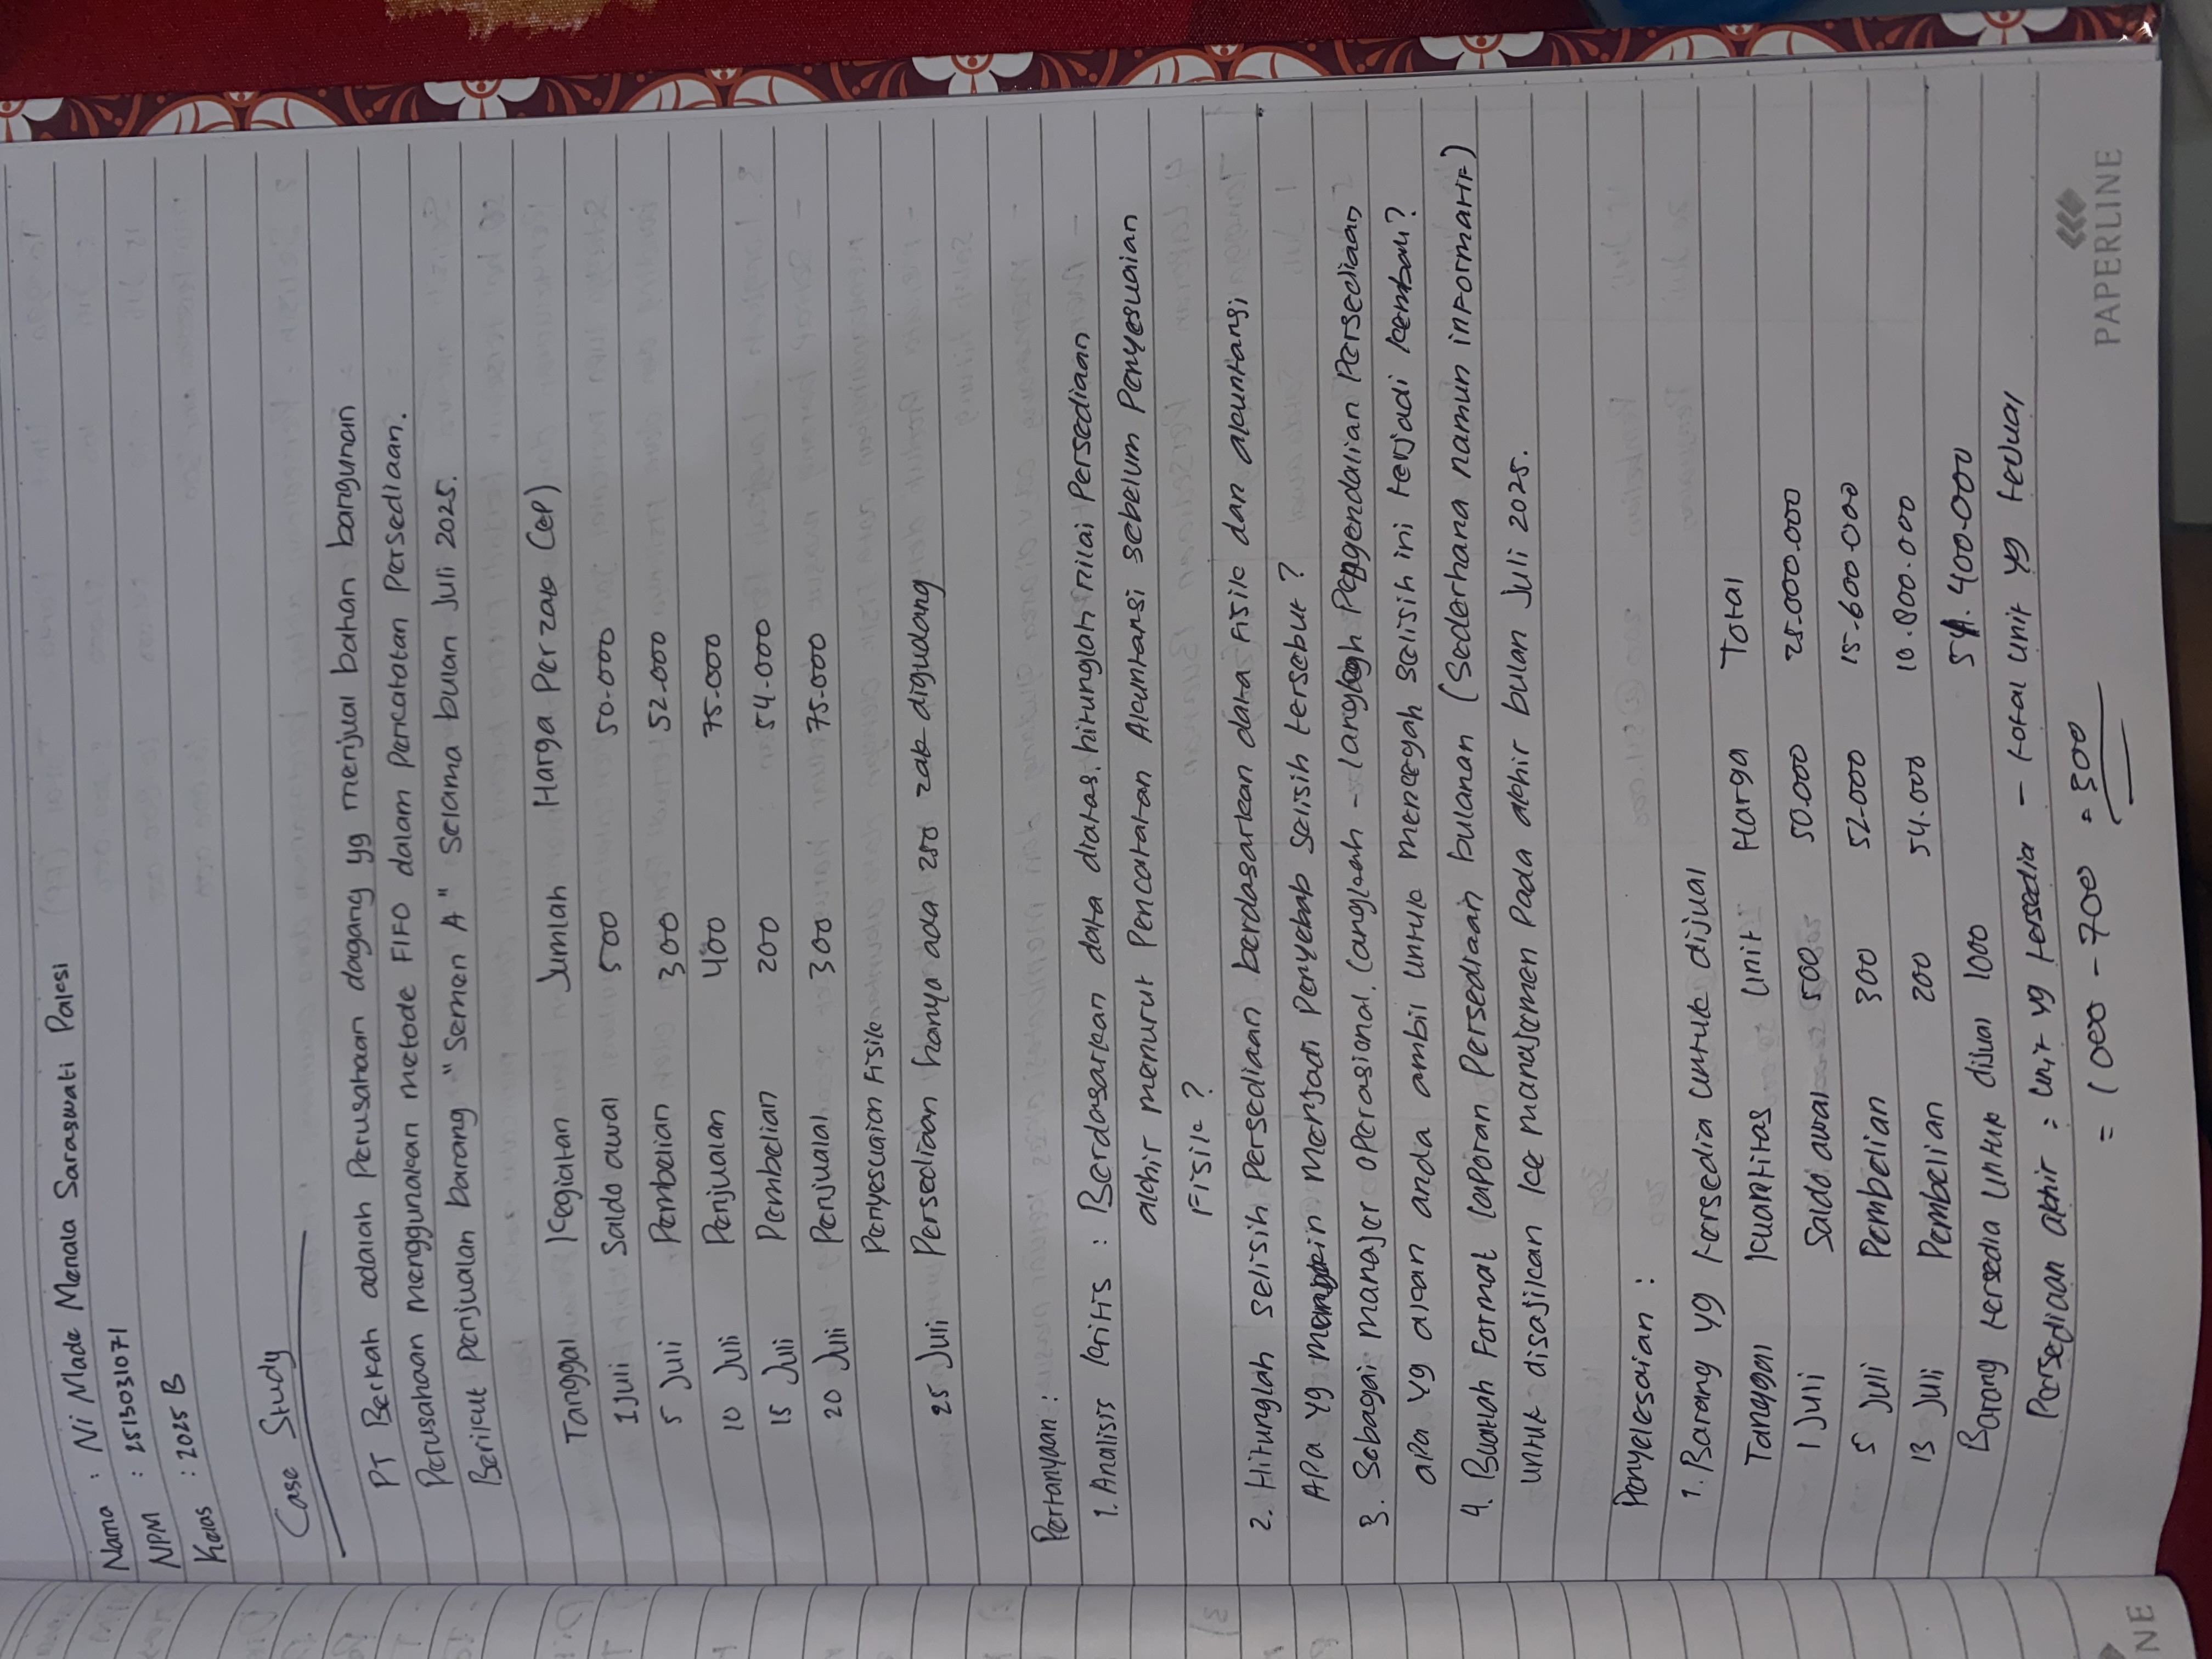 Nama : Ni Made Menala Saraswati Palesi
NPM : 2513031071
Kelas : 2025 B
Case Study
PT Berkah adalah Perusahaan dagang yg menjual bahan bangunan
Perusahaan menggunakan metode FIFO dalam Pencatatan Persediaan.
Berikut Penjualan barang "Semen A" Selama bulan Juli 2025.
Tanggal Kegiatan Jumlah Harga Per zak (Rp)
1 Juli Saldo awal 500 50.000
5 Juli Pembelian 300 52.000
10 Juli Penjualan 400 75.000
15 Juli Pembelian 200 54.000
20 Juli Penjualal 300 75.000
Penyesuaian Fisik
25 Juli Persediaan hanya ada 280 zak digudang
Pertanyaan :
1. Analisis kritis : Berdasarkan data diatas, hitunglah nilai Persediaan
akhir menurut Pencatatan Akuntansi sebelum Penyesuaian
Fisik ?
2. Hitunglah selisih Persediaan berdasarkan data Fisik dan akuntansi
APa yg mungkin menjadi Penyebab selisih tersebut ?
3. Sebagai manajer operasional, langkah - langkah Pengendalian Persediaan
apa yg akan anda ambil untuk mencegah selisih ini terjadi kembali?
4. Buatlah Format laporan Persediaan bulanan (Sederhana namun informatif)
untuk disajikan ke manajemen Pada akhir bulan Juli 2025.
Penyelesaian :
1. Barang yg tersedia untuk dijual
Tanggal Kuantitas Unit Harga Total
1 Juli Saldo awal 500 50.000 25.000.000
5 Juli Pembelian 300 52.000 15.600.000
13 Juli Pembelian 200 54.000 10.800.000
Barang tersedia untuk dijual 1000 51.400.000
Persediaan akhir : Unit yg tersedia - total unit yg terjual
= 1000 - 700 = 300
PAPERLINE
NE